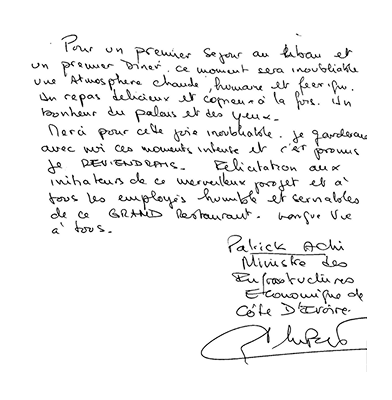 Pour un premier sejour au Liban et
un premier Diner. ce moment sera inoubliable
une Atmosphère chaude, humaine et feerique.
Un repas delicieux et copieux à la fois. Un
bonheur du palais et des yeux.
Merci pour cette joie inoubliable. Je garderai
avec moi ces moments intense et c'est promis
Je REVIENDRAIS. Felicitation aux
initiateurs de ce merveilleux projet et à
tous les employés humble et serviables
de ce GRAND Restaurant. Longue Vie
à tous.
Patrick Achi
Ministre des
Infrastructures
Economique de
Côte D'Ivoire